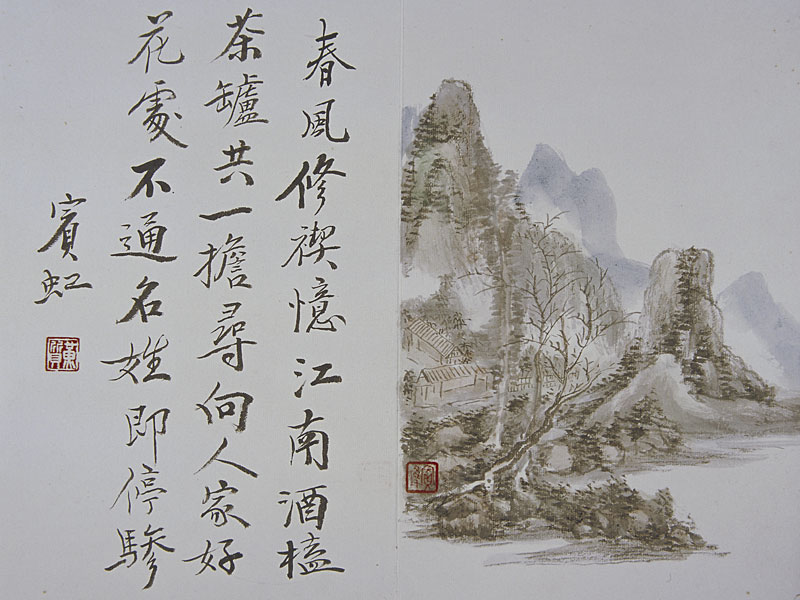 春風修禊憶江南酒榼
茶罏共一擔尋向人家好
花處不通名姓即停驂
賓虹